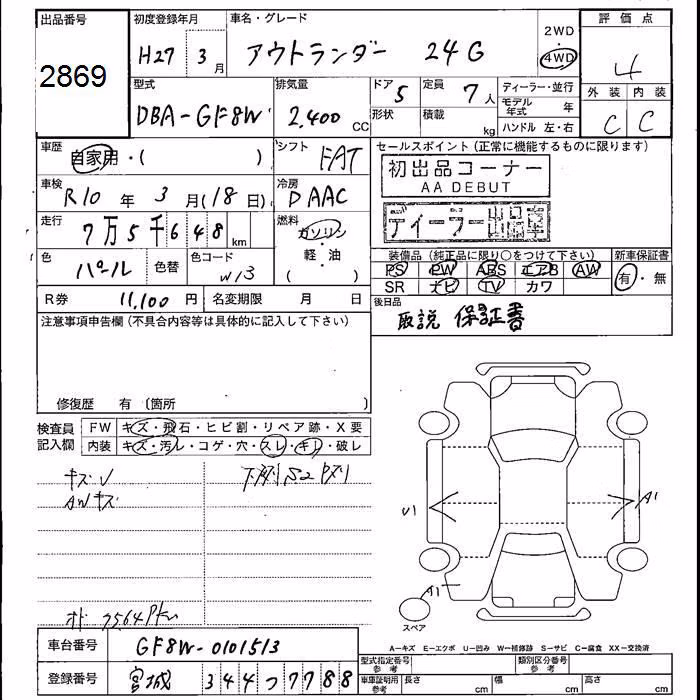 出品番号 初度登録年月 車名・グレード 2WD 評価点
2869 H27 3月 アウトランダー 24G 4WD 4
型式 排気量 ドア 定員 ディーラー・並行 外装 内装
DBA-GF8W 2,400 CC 5 7人 モデル年式 年 C C
形状 積載 kg ハンドル 左・右
車歴 自家用・( ) シフト FAT セールスポイント(正常に機能するものに限ります)
初出品コーナー
AA DEBUT
車検 R10年 3月(18日) 冷房 DAAC
ディーラー出品車
走行 7万5千648km 燃料 ガソリン・軽油・( )
装備品(純正品に限り○をつけて下さい) 新車保証書
色 パール 色替 色コード W13
PS PW ABS エアB AW 有・無
SR ナビ TV カワ
R券 11,100円 名変期限 月 日
後日品 取説 保証書
注意事項申告欄(不具合内容等は具体的に記入して下さい)
修復歴 有〔箇所 〕
検査員記入欄 FW キズ・飛石・ヒビ割・リペア跡・X要
内装 キズ・汚レ・コゲ・穴・スレ・キレ・破レ
キズU
AWキズ
U1 A1
A1
スペア
A−キズ E−エクボ U−凹み W−補修跡 S−サビ C−腐食 XX−交換済
車台番号 GF8W-0101513
型式指定番号 参考 類別区分番号 参考
登録番号 宮城 344 つ 7788
車庫証明用 参考 長さ cm 幅 cm 高さ cm